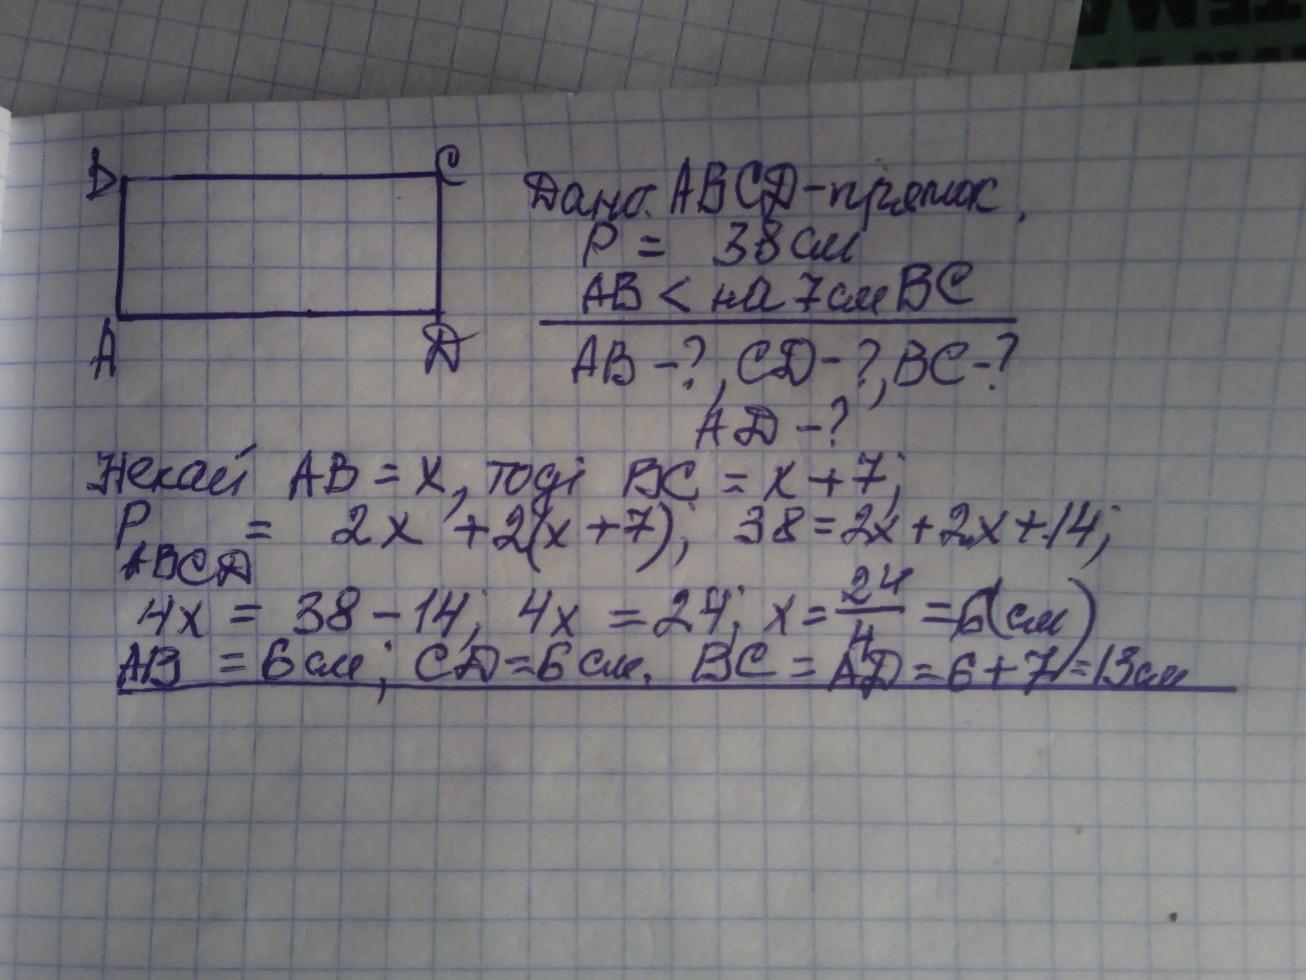 ТЕМА
B C
A D
Дано: ABCD-прямок.
P = 38 см
AB < на 7 см BC
AB-?, CD-?, BC-?
AD-?
Нехай AB = x, тоді BC = x + 7;
P ABCD = 2x + 2(x + 7); 38 = 2x + 2x + 14;
4x = 38 - 14; 4x = 24; x = 24/4 = 6(см)
AB = 6 см; CD = 6 см. BC = AD = 6 + 7 = 13 см